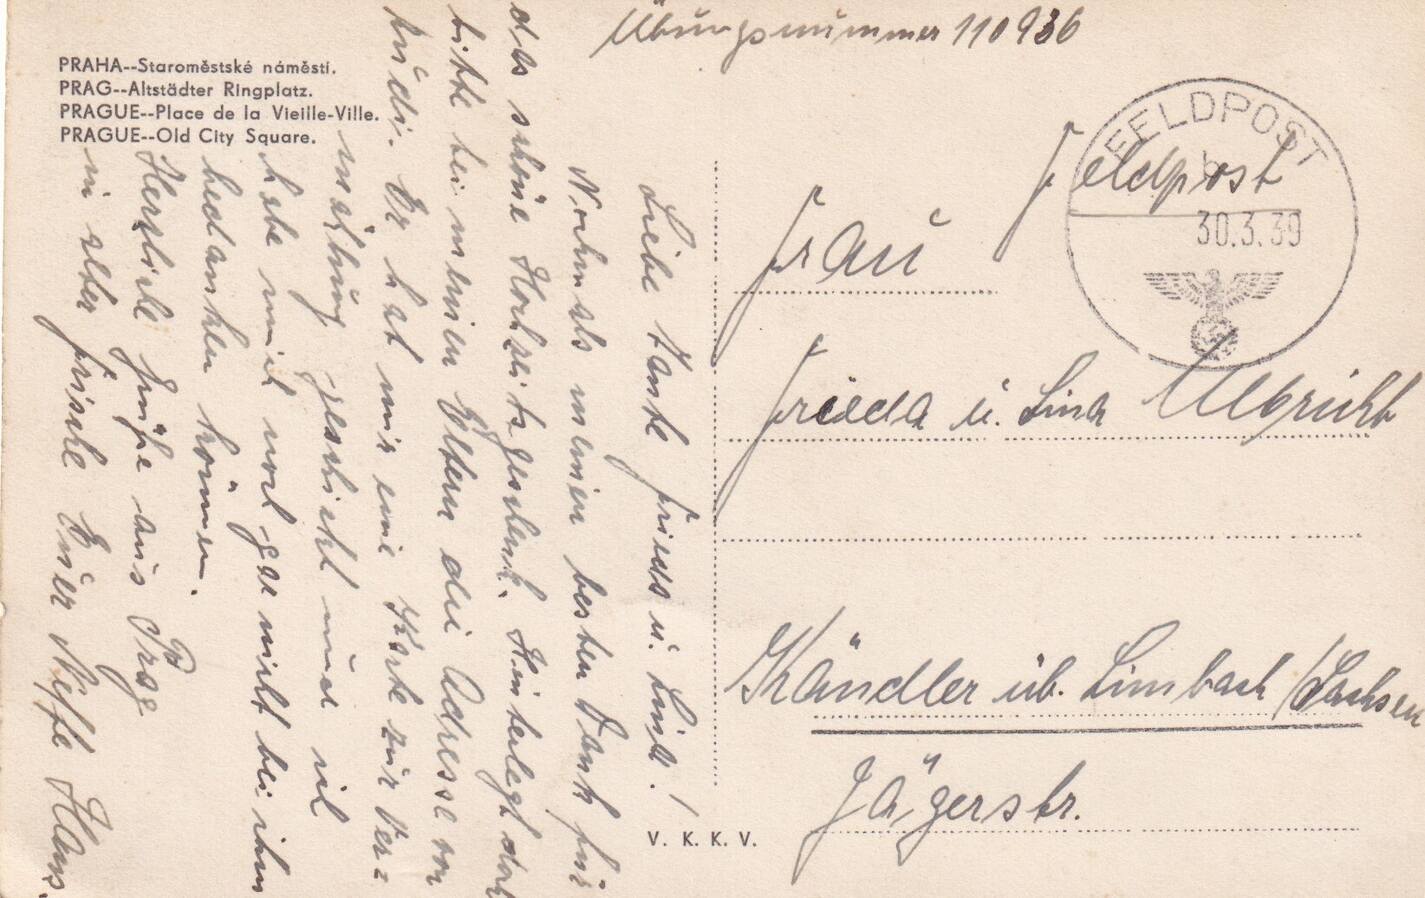 Übungsnummer 110936
PRAHA--Staroměstské náměstí.
PRAG--Altstädter Ringplatz.
PRAGUE--Place de la Vieille-Ville.
PRAGUE--Old City Square.
FELDPOST
b
30.3.39
Feldpost
Frau
Frieda u. Lina Ulbricht
Kändler üb. Limbach /Sachsen
Jägerstr.
V. K. K. V.
Liebe Tante Frieda u. Lina!
Nochmals meinen besten Dank für
das schöne Hochzeitsgeschenk. Hinterlegt doch
bitte bei meinen Eltern die Adresse von
Rudi. Er hat mir eine Karte zur Ver=
mählung geschickt und ich
habe mich noch gar nicht bei ihm
bedanken können.
Herzliche Grüße aus Prag
in alter Frische Euer Neffe Hans.